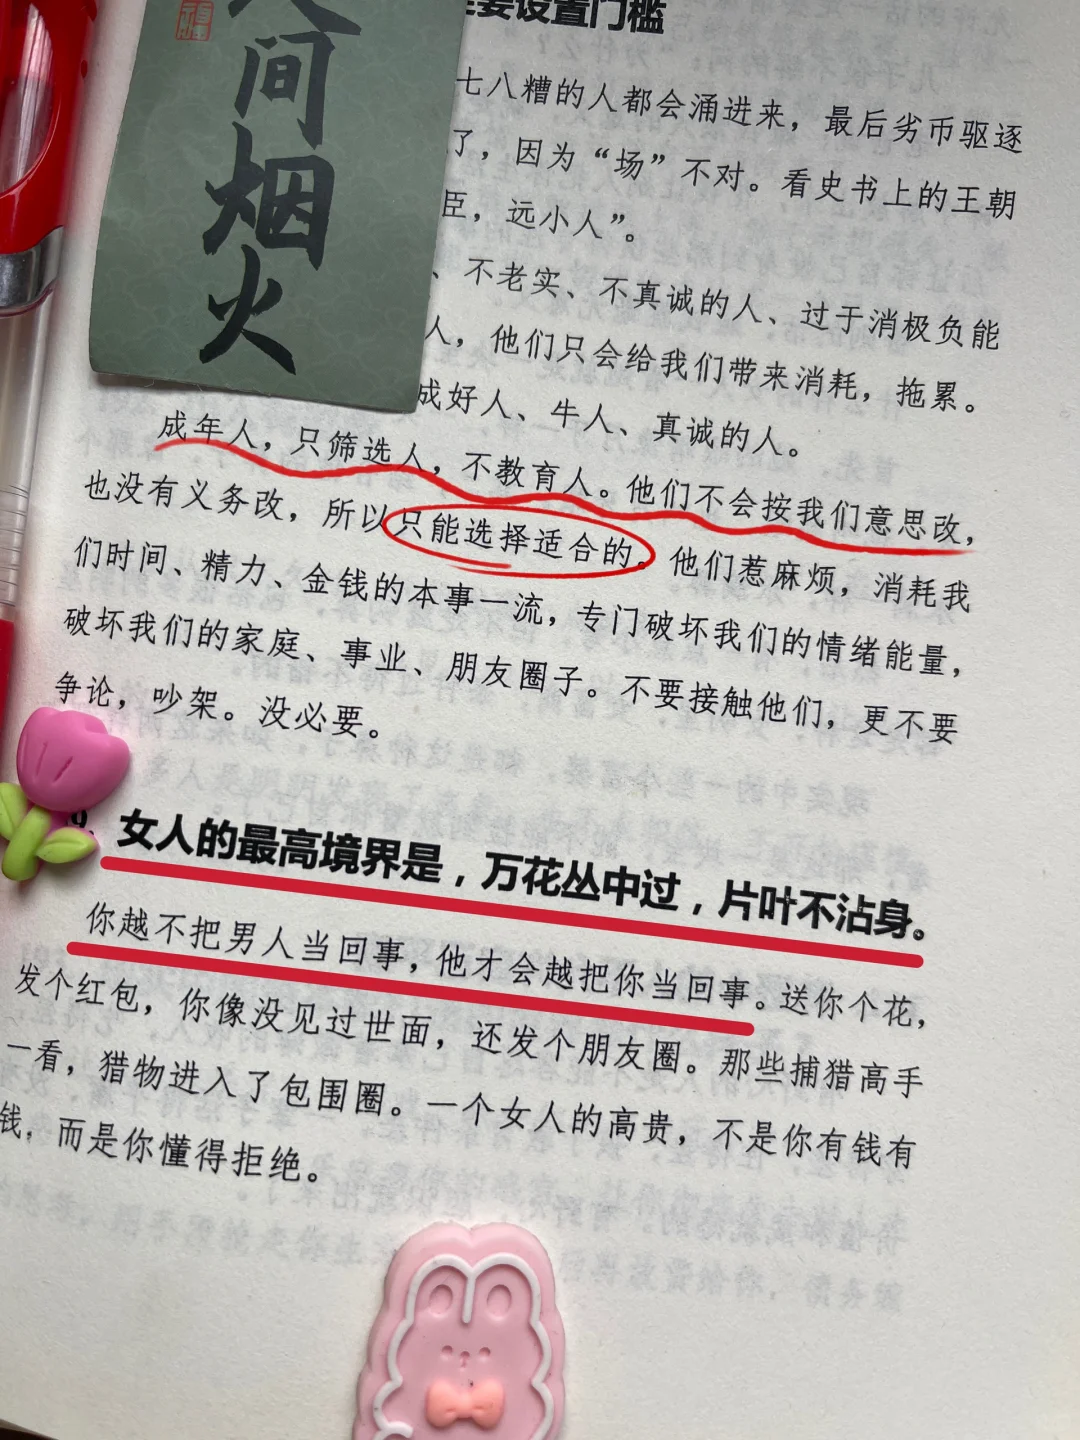 间
烟
火
要设置门槛
七八糟的人都会涌进来，最后劣币驱逐
了，因为“场”不对。看史书上的王朝
臣，远小人”。
、不老实、不真诚的人、过于消极负能
人，他们只会给我们带来消耗，拖累。
成好人、牛人、真诚的人。
成年人，只筛选人，不教育人。他们不会按我们意思改，
也没有义务改，所以只能选择适合的。他们惹麻烦，消耗我
们时间、精力、金钱的本事一流，专门破坏我们的情绪能量，
破坏我们的家庭、事业、朋友圈子。不要接触他们，更不要
争论，吵架。没必要。
9. 女人的最高境界是，万花丛中过，片叶不沾身。
你越不把男人当回事，他才会越把你当回事。送你个花，
发个红包，你像没见过世面，还发个朋友圈。那些捕猎高手
一看，猎物进入了包围圈。一个女人的高贵，不是你有钱有
钱，而是你懂得拒绝。